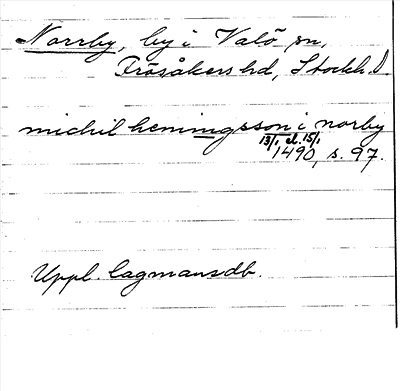 Norrby, by i Valö sn,
Frösåkers hd, Stockh. l.
michil hemingsson i norby
13/1 el. 15/1
1490, s. 97.
Uppl. lagmansdb.